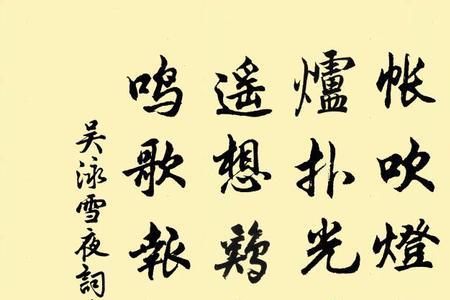 帐吹燈
爐扑光
遥想鷄
鸣歌報
吴泳雪夜詞